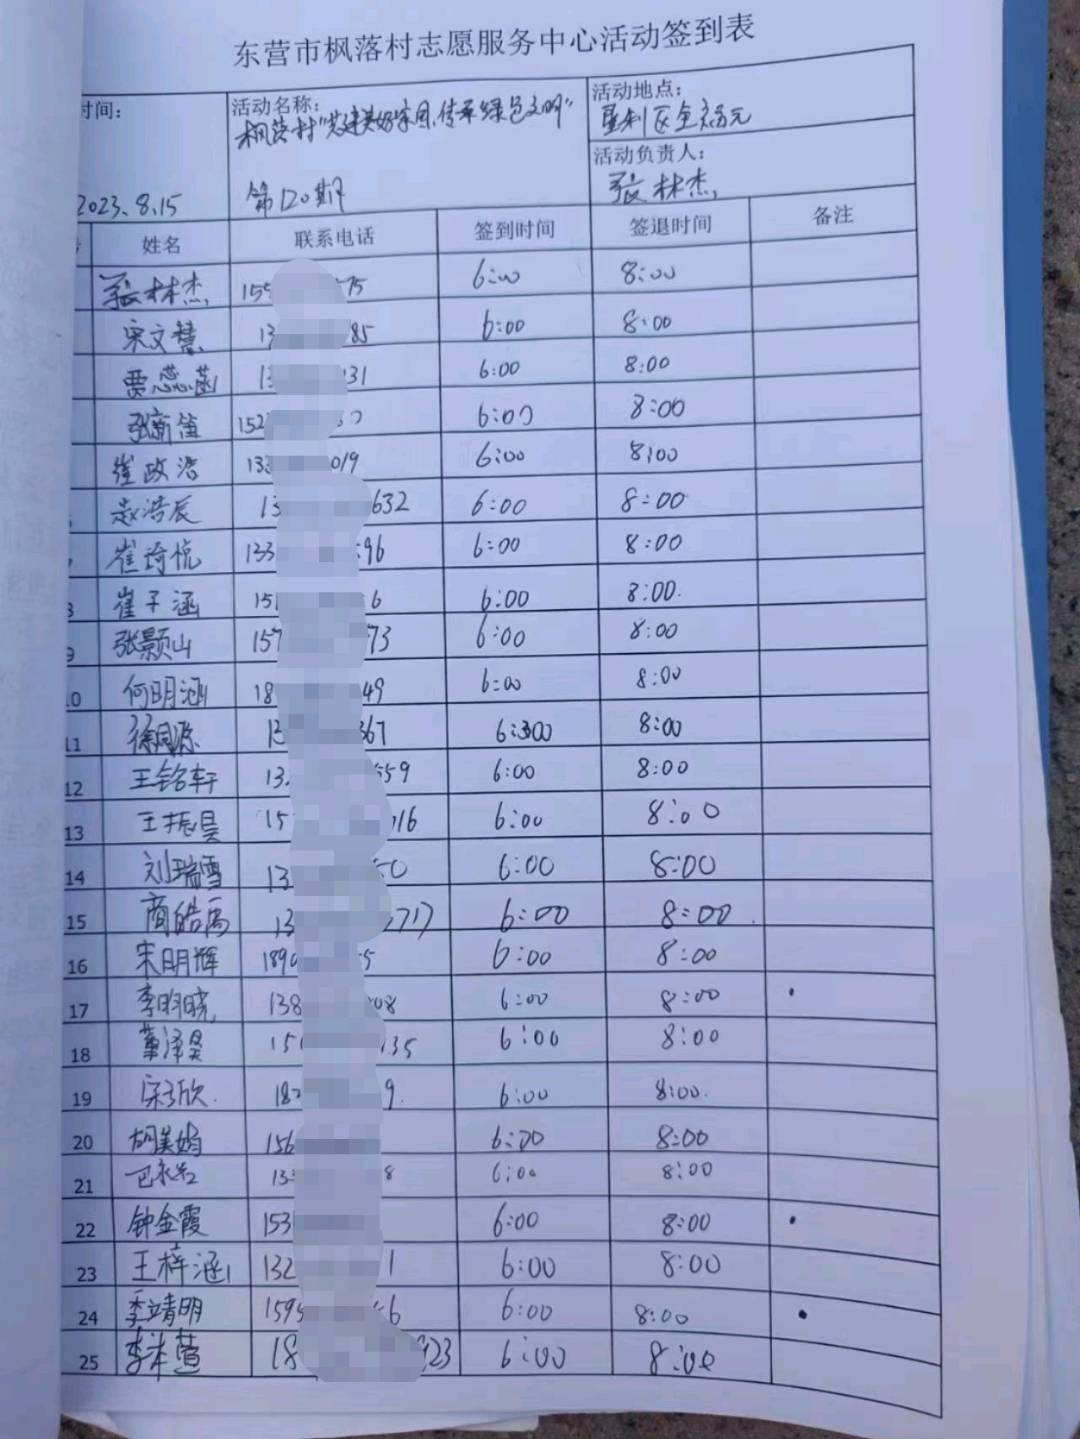 东营市枫落村志愿服务中心活动签到表
时间:
2023.8.15
活动名称:
枫落村"共建美好家园,传承绿色文明"
第120期
活动地点:
垦利区
活动负责人:
张林杰
姓名 联系电话 签到时间 签退时间 备注
张林杰 155 75 6:00 8:00
宋文慧 13 85 6:00 8:00
贾蕊菡 13 31 6:00 8:00
张新笛 152 6:00 8:00
崔政浩 133 019 6:00 8:00
赵浩辰 13 632 6:00 8:00
崔琦悦 133 96 6:00 8:00
8 崔子涵 151 6 6:00 8:00
9 张颢山 157 73 6:00 8:00
10 何明涵 18 49 6:00 8:00
11 徐 源 13 367 6:300 8:00
12 王铭轩 132 559 6:00 8:00
13 王振昊 15 016 6:00 8:00
14 刘瑞雪 13 50 6:00 8:00
15 商皓禹 13 717 6:00 8:00
16 宋明辉 1890 5 6:00 8:00
17 李昀晓 138 08 6:00 8:00
18 董泽昊 150 135 6:00 8:00
19 宋 欣 182 9 6:00 8:00
20 胡美娟 156 6:00 8:00
21 133 8 6:00 8:00
22 钟金霞 153 6:00 8:00
23 王梓涵 132 1 6:00 8:00
24 李靖明 1595 6 6:00 8:00
25 李 萱 18 923 6:00 8:00